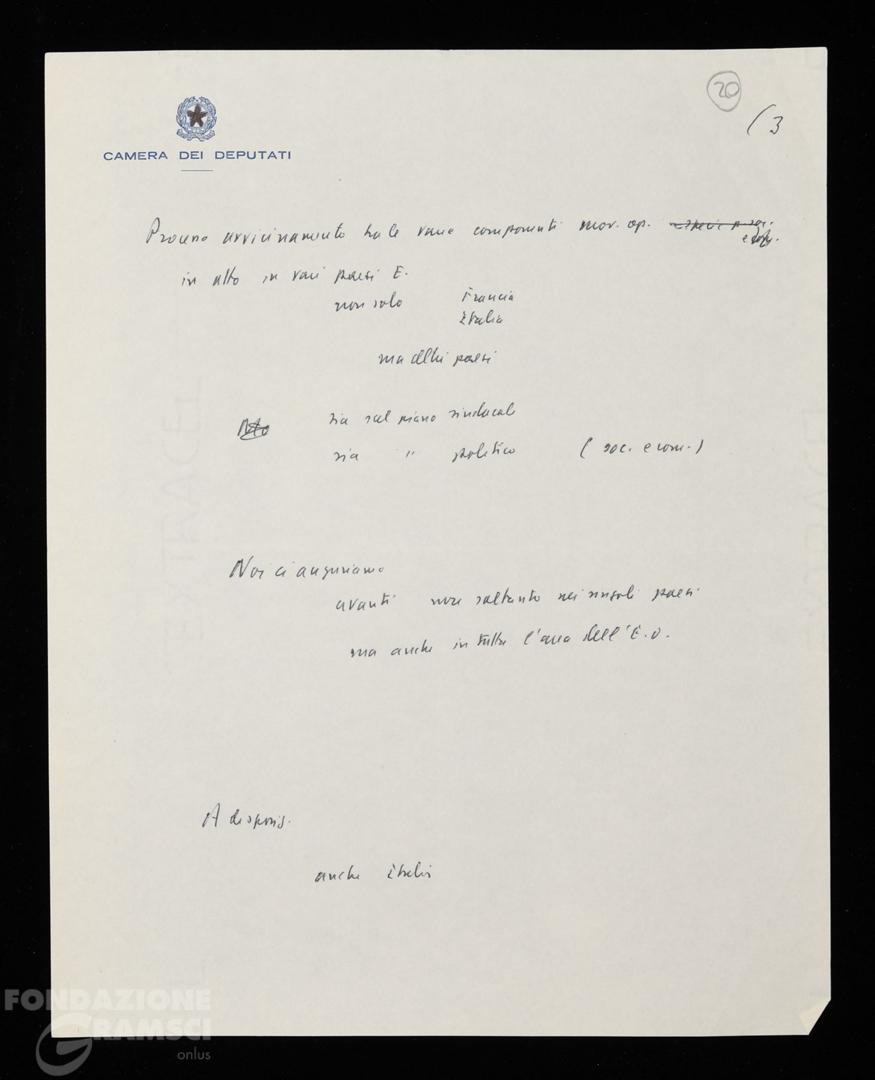 20
(3
CAMERA DEI DEPUTATI
Processo avvicinamento tra le varie componenti mov. op.
in atto in vari paesi E.
non solo Francia
Italia
ma altri paesi
sia sul piano sindacale
sia " politico (soc. e com.)
Noi ci auguriamo
avanti non soltanto nei singoli paesi
ma anche in tutta l'area dell'E.O.
A dispos.
anche Italia
FONDAZIONE
GRAMSCI
onlus